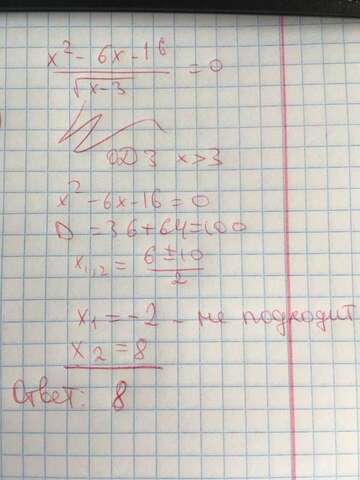 x² - 6x - 16
/ √(x-3) = 0
ОДЗ x>3
x² - 6x - 16 = 0
D = 36 + 64 = 100
x₁,₂ = (6 ± 10) / 2
x₁ = -2 - не подходит
x₂ = 8
Ответ: 8